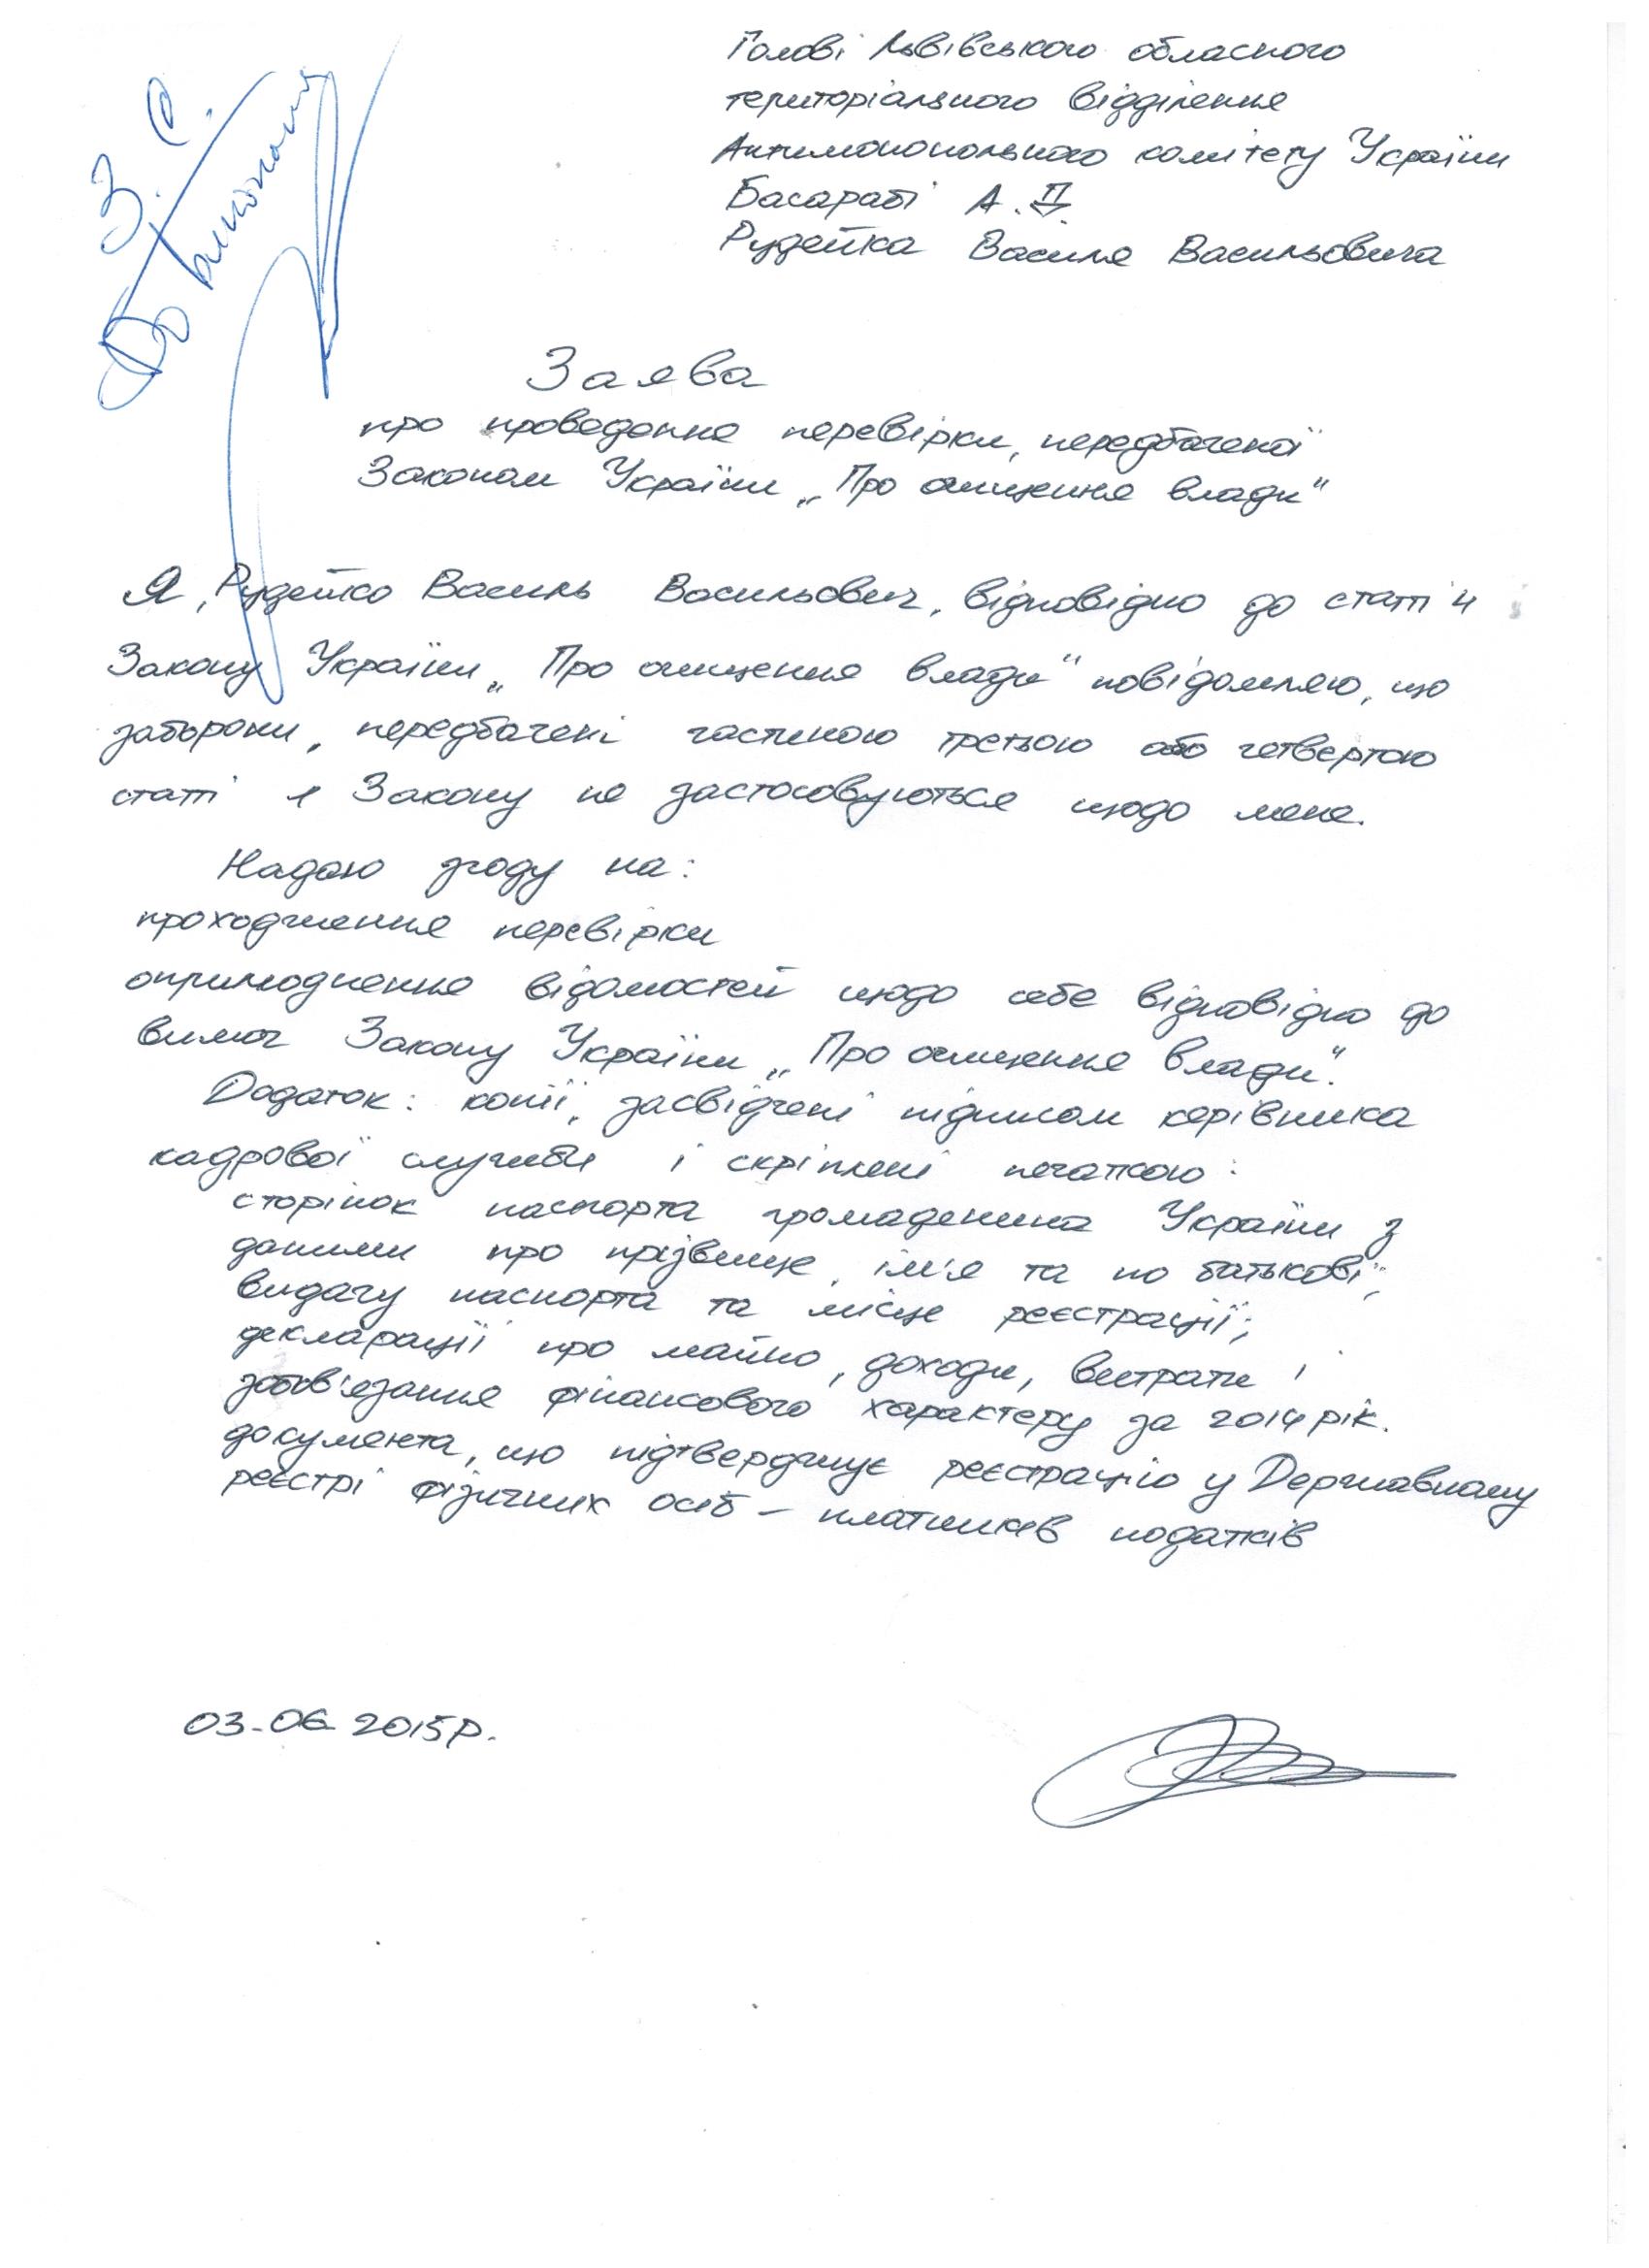 З. С.
До виконання
Голові Львівського обласного
територіального відділення
Антимонопольного комітету України
Басарабі А. П.
Рудейка Василя Васильовича
Заява
про проведення перевірки, передбаченої
Законом України „Про очищення влади"
Я, Рудейко Василь Васильович, відповідно до статті 4
Закону України „Про очищення влади" повідомляю, що
заборони, передбачені частиною третьою або четвертою
статті 1 Закону не застосовуються щодо мене.
Надаю згоду на:
проходження перевірки
оприлюднення відомостей щодо себе відповідно до
вимог Закону України „Про очищення влади".
Додаток: копії, засвідчені підписом керівника
кадрової служби і скріплені печаткою:
сторінок паспорта громадянина України з
даними про прізвище, ім'я та по батькові,
видачу паспорта та місце реєстрації;
декларації про майно, доходи, витрати і
зобов'язання фінансового характеру за 2014 рік.
документа, що підтверджує реєстрацію у Державному
реєстрі фізичних осіб – платників податків
03.06.2015р.